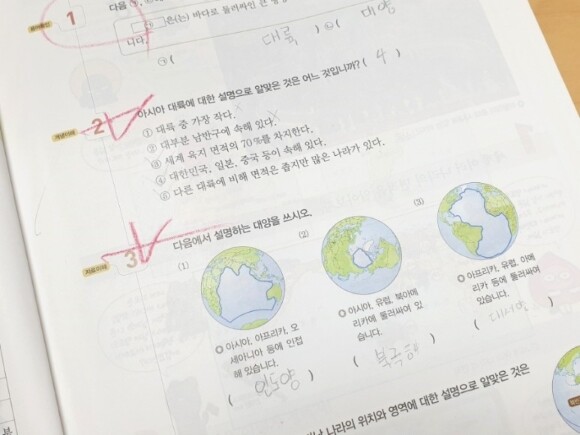 1
다음
은(는) 바다로 둘러싸인 큰
니다.
㉠ ( 대륙 ) ㉡ ( 대양
2 아시아 대륙에 대한 설명으로 알맞은 것은 어느 것입니까? ( 4 )
① 대륙 중 가장 작다.
② 대부분 남반구에 속해 있다.
③ 세계 육지 면적의 70%를 차지한다.
④ 대한민국, 일본, 중국 등이 속해 있다.
⑤ 다른 대륙에 비해 면적은 좁지만 많은 나라가 있다.
3 다음에서 설명하는 대양을 쓰시오.
(1)
◎ 아시아, 아프리카, 오
세아니아 등에 인접
해 있습니다.
( 인도양 )
(2)
◎ 아시아, 유럽, 북아메
리카에 둘러싸여 있
습니다.
( 북극해 )
(3)
◎ 아프리카, 유럽, 아메
리카 등에 둘러싸여
있습니다.
( 대서양 )
나라의 위치와 영역에 대한 설명으로 알맞은 것은